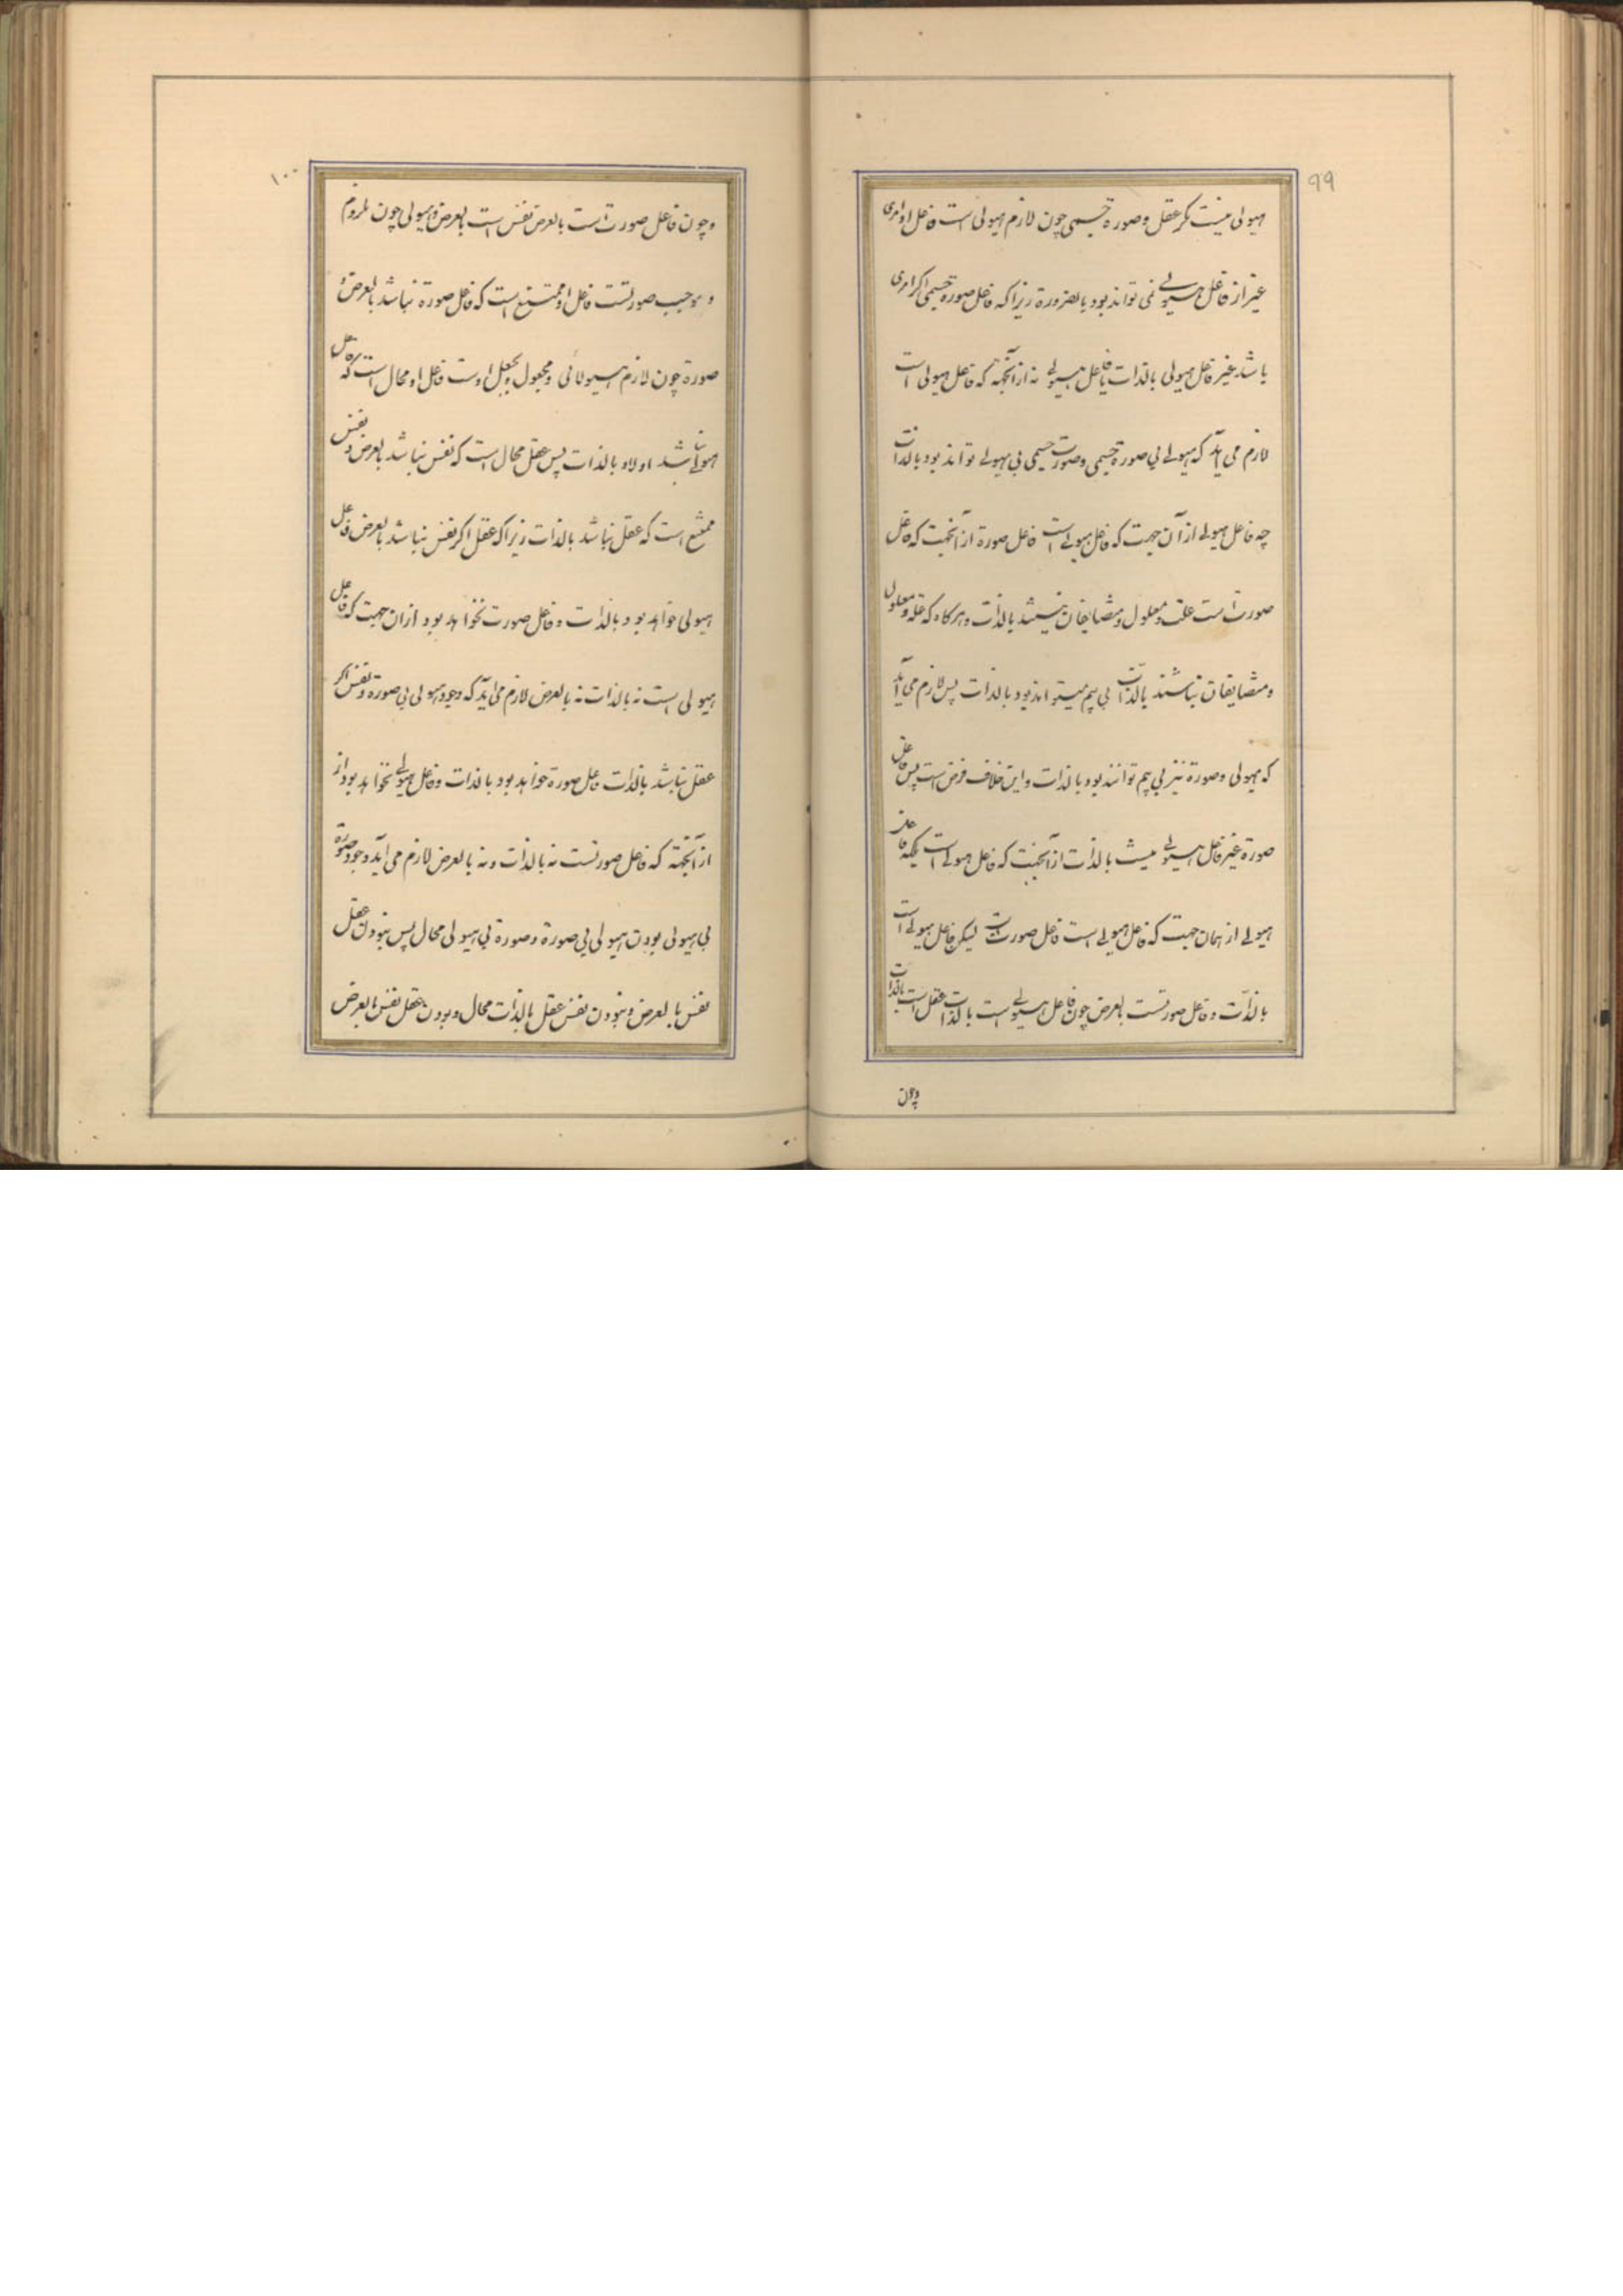 ۹۹
هیولی نیست مگر عقل و صورة جسمی چون لازم هیولی است فاعل او امری
غیر از فاعل هیولی نمی تواند بود بالضرورة زیرا که فاعل صورة جسمی اگر امری
باشد غیر فاعل هیولی بالذات یا فاعل هیولی نه از آنجهة که فاعل هیولی است
لازم می آید که هیولی بی صورة جسمی و صورت جسمی بی هیولی تواند بود بالذات
چه فاعل هیولی از آن جهت که فاعل هیولی است فاعل صورة از آنجهت که فاعل
صورت است علت و معلول و متضایفان نیستند بالذات و هرگاه که علة و معلول
و متضایفان نباشند بالذات بی هم میتواند بود بالذات پس لازم می آید
که هیولی و صورة نیز بی هم توانند بود بالذات و این خلاف فرض است پس فاعل
صورة غیر فاعل هیولی نیست بالذات از آنجهت که فاعل هیولی است بلکه فاعل
هیولی از همان جهت که فاعل هیولی است فاعل صورت است لیکن فاعل هیولی است
بالذات و فاعل صورتست بالعرض چون فاعل هیولی است بالذات عقل است بالذات
وچون
۱۰۰
وچون فاعل صورت است بالعرض نفس است بالعرض و هیولی چون ملزوم
و موجب صورتست فاعل او ممتنع است که فاعل صورة نباشد بالعرض و
صورة چون لازم هیولانی و مجعول بجعل اوست فاعل او محال است که فاعل
هیولی نباشد اولا و بالذات پس عقل محال است که نفس نباشد بالعرض و نفس
ممتنع است که عقل نباشد بالذات زیرا که عقل اگر نفس نباشد بالعرض فاعل
هیولی خواهد بود بالذات و فاعل صورت نخواهد بود از ان جهت که فاعل
هیولی است نه بالذات نه بالعرض لازم می آید که وجود هیولی بی صورة و نفس اگر
عقل نباشد بالذات فاعل صورة خواهد بود بالذات و فاعل هیولی نخواهد بود از
از آنجهة که فاعل صورتست نه بالذات و نه بالعرض لازم می آید وجود صورة
بی هیولی بودن هیولی بی صورة و صورة بی هیولی محال پس نبودن عقل
نفس بالعرض و نبودن نفس عقل بالذات محال و بودن عقل نفس بالعرض